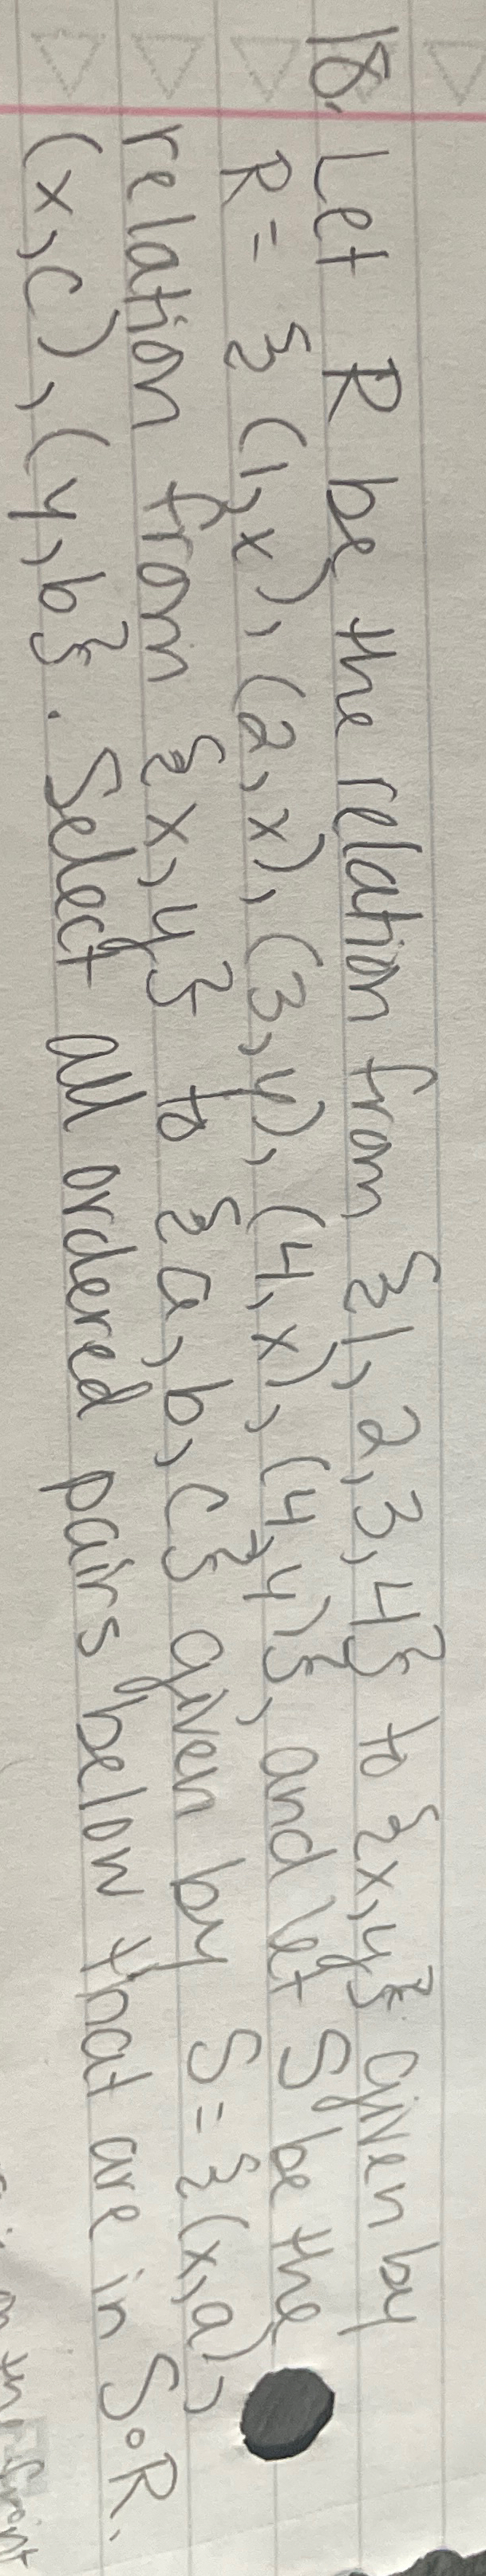 18. Let R be the relation from {1, 2, 3, 4} to {x, y} given by
R = {(1, x), (2, x), (3, y), (4, x), (4, y)}, and let S be the
relation from {x, y} to {a, b, c} given by S = {(x, a),
(x, c), (y, b}. Select all ordered pairs below that are in S∘R.